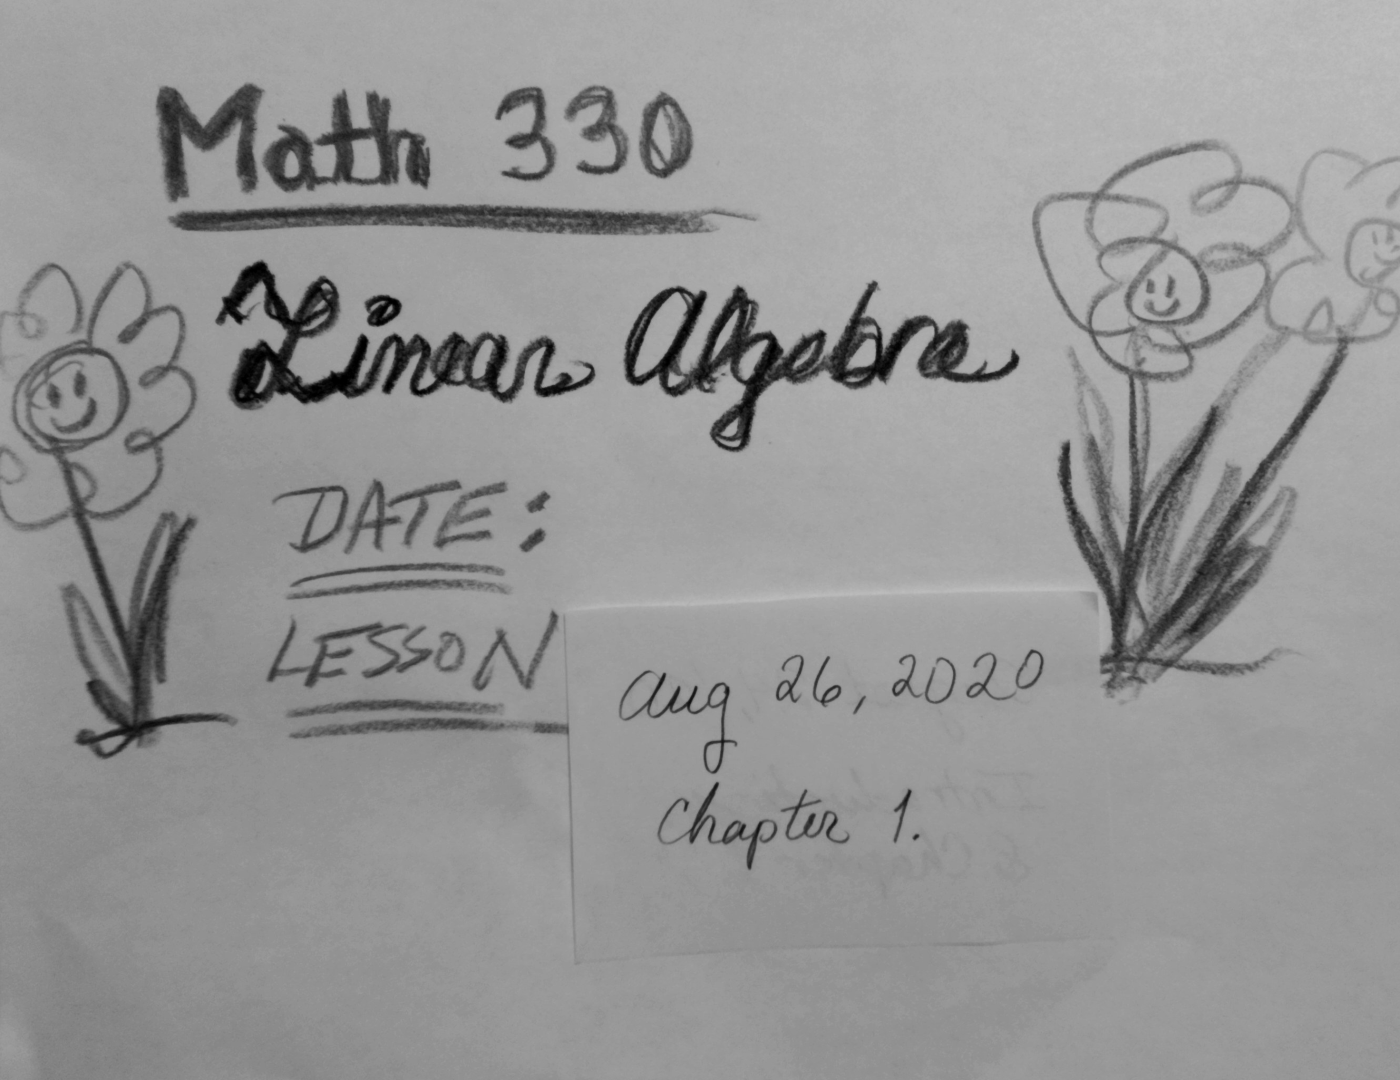 Math 330
Linear Algebra
DATE:
LESSON
Aug 26, 2020
Chapter 1.